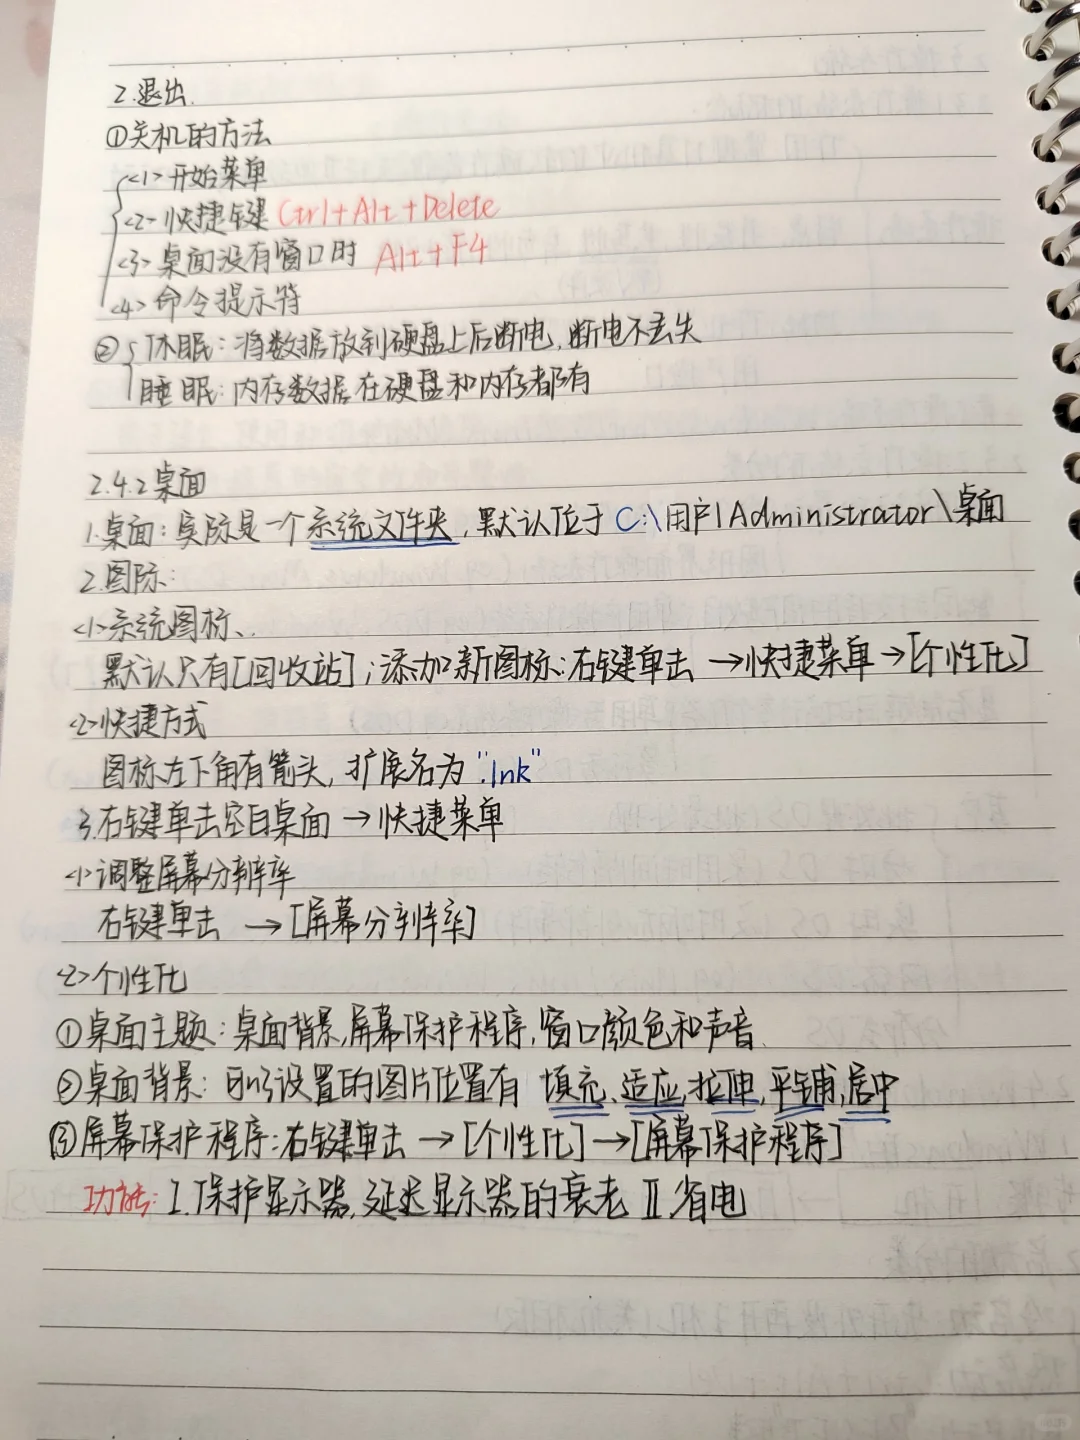 2.退出.
①关机的方法
<1>开始菜单
<2>快捷键 Ctrl+Alt+Delete
<3>桌面没有窗口时 Alt+F4
<4>命令提示符
②休眠：将数据放到硬盘上后断电,断电不丢失
睡眠：内存数据在硬盘和内存都有
2.4.2桌面
1.桌面：实际是一个系统文件夹,默认位于 C:\用户\Administrator\桌面
2.图标：
<1>系统图标、.
默认只有[回收站]；添加新图标：右键单击→快捷菜单→[个性化]
<2>快捷方式
图标左下角有箭头,扩展名为".lnk"
3.右键单击空白桌面→快捷菜单
<1>调整屏幕分辨率
右键单击→[屏幕分辨率]
<2>个性化
①桌面主题：桌面背景,屏幕保护程序,窗口颜色和声音.
②桌面背景：可以设置的图片位置有 填充、适应,拉伸,平铺,居中
③屏幕保护程序：右键单击→[个性化]→[屏幕保护程序]
功能：I.保护显示器,延迟显示器的衰老 II.省电